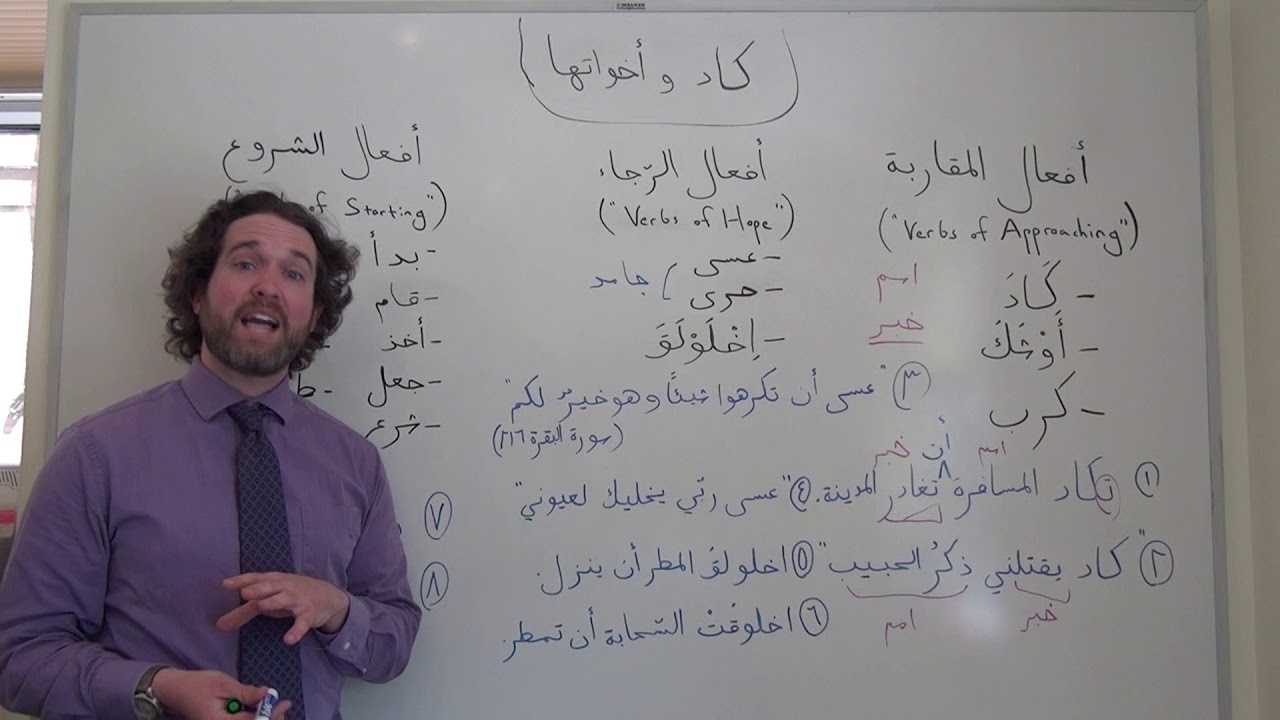 كاد و أخواتها
أفعال المقاربة
("Verbs of Approaching")
- كَادَ
- أَوْشَكَ
- كرب
اسم
خبر
أفعال الرّجاء
("Verbs of Hope")
- عسى
- حرى
جامد
- اِخْلَوْلَقَ
أفعال الشروع
of Starting")
- بدأ
- قام
- أخذ
- جعل
- شرع
٣ "عسى أن تكرهوا شيئًا وهو خيرٌ لكم"
(سورة البقرة ٢١٦)
اسم أن خبر
١ تكاد المسافرة ^ تغادر المدينة.
٤ "عسى ربّي يخليك لعيوني"
٢ "كاد يقتلني ذكرُ الحبيب"
خبر اسم
٥ اخلولقَ المطر أن ينزل
٦ اخلوقتْ السّحابة أن تمطر.
٧
٨